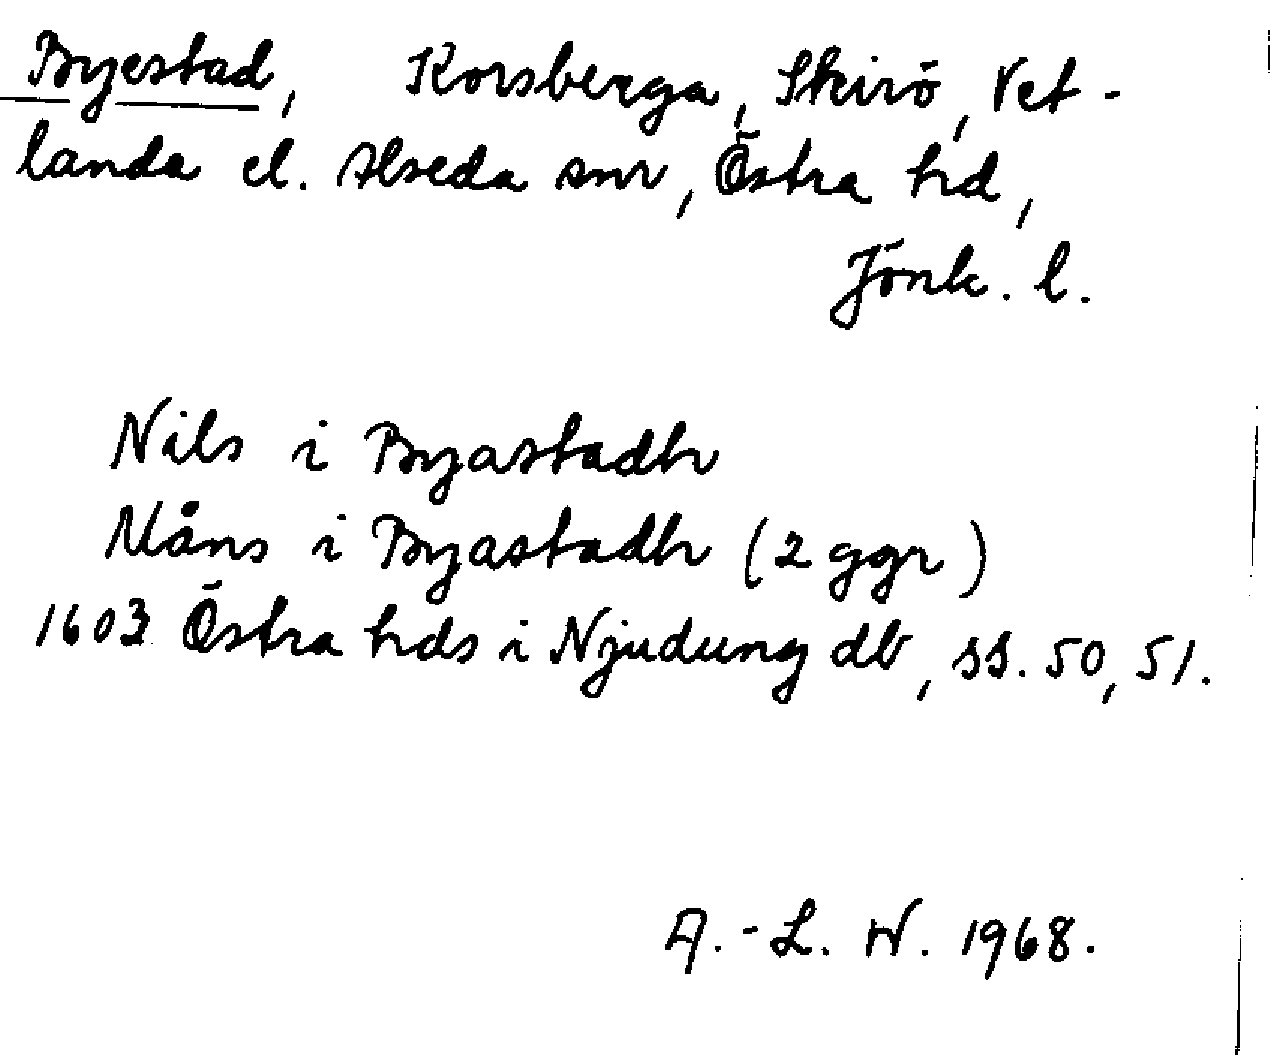 Byestad, Korsberga, Skirö, Vet-
landa el. Alseda snr, Östra hd,
Jönk. l.
Nils i Byastadh
Måns i Byastadh (2 ggr)
1603 Östra hds i Njudung db, ss. 50, 51.
A.-L. W. 1968.